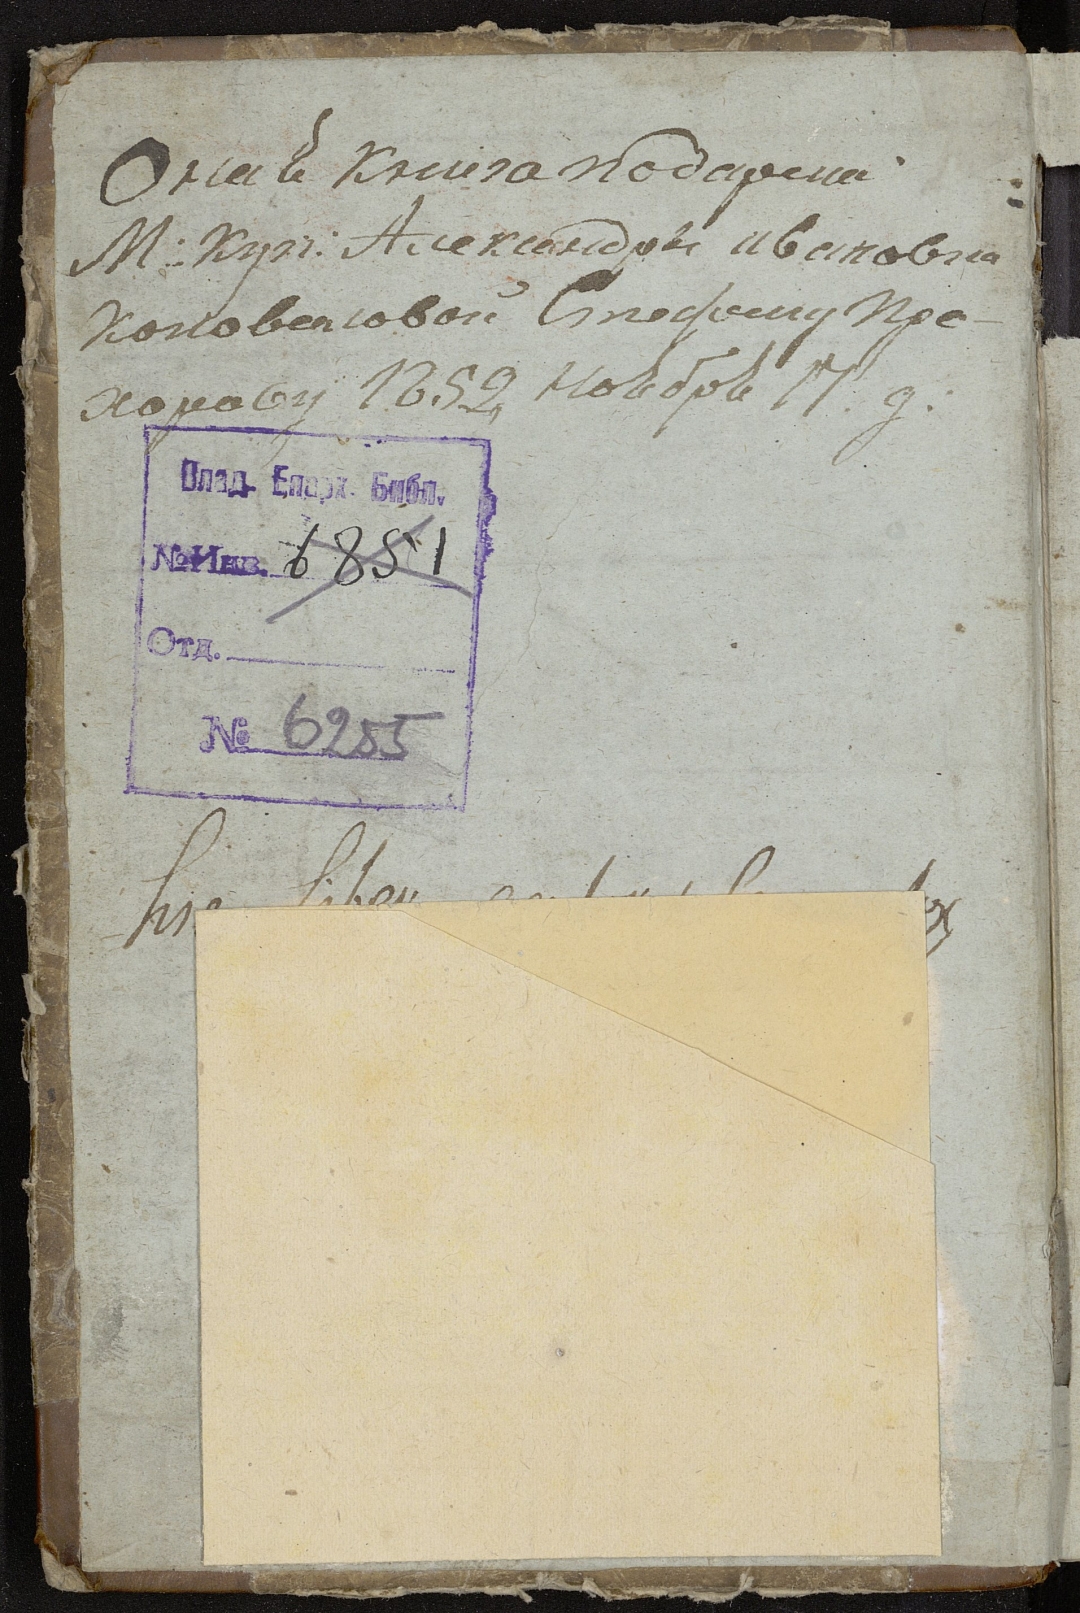 Онаѣ Книга подарена
М: Куп: Александрѣ ивановна
Коноваловой Стефану Про-
хораву 1852 Ноѣбрѣ 17. д:
Влад. Епарх. Библ.
№ Инв. 6851
Отд.
№ 6255
hic liber